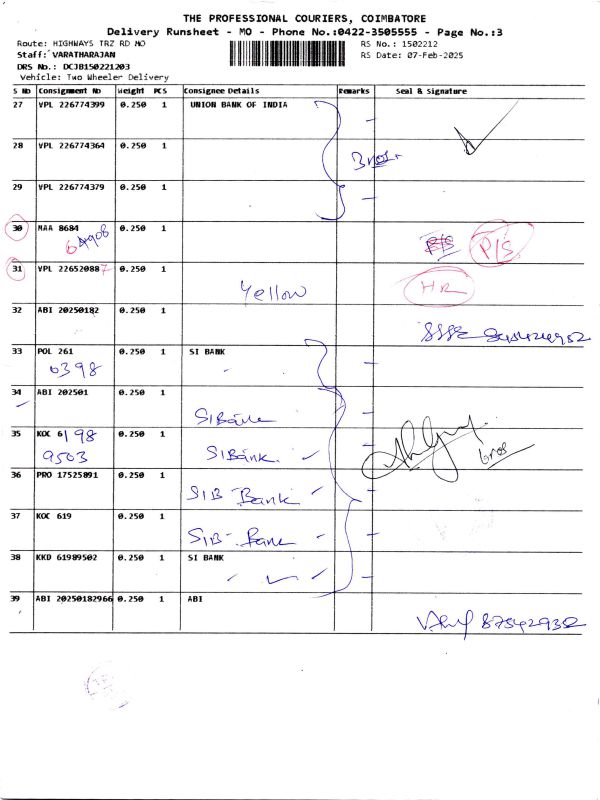 THE PROFESSIONAL COURIERS, COIMBATORE
Delivery Runsheet - MO - Phone No.:0422-3505555 - Page No.:3
Route: HIGHWAYS TRZ RD MO
RS No.: 1502212
Staff: VARATHARAJAN
RS Date: 07-Feb-2025
DRS No.: DCJB150221203
Vehicle: Two Wheeler Delivery
S No Consignment No Weight PCS Consignee Details Remarks Seal & Signature
27 VPL 226774399 0.250 1 UNION BANK OF INDIA
28 VPL 226774364 0.250 1
29 VPL 226774379 0.250 1
30 MAA 8684 0.250 1
P/S P/S
31 VPL 226520887 0.250 1
Yellow
HR
32 ABI 20250182 0.250 1
33 POL 261 0.250 1 SI BANK
0398
34 ABI 202501 0.250 1
SI Bank
35 KOC 6198 0.250 1
9503 SI Bank
36 PRO 17525891 0.250 1
SIB Bank
37 KOC 619 0.250 1
SIB - Bank
38 KKD 61989502 0.250 1 SI BANK
39 ABI 20250182966 0.250 1 ABI